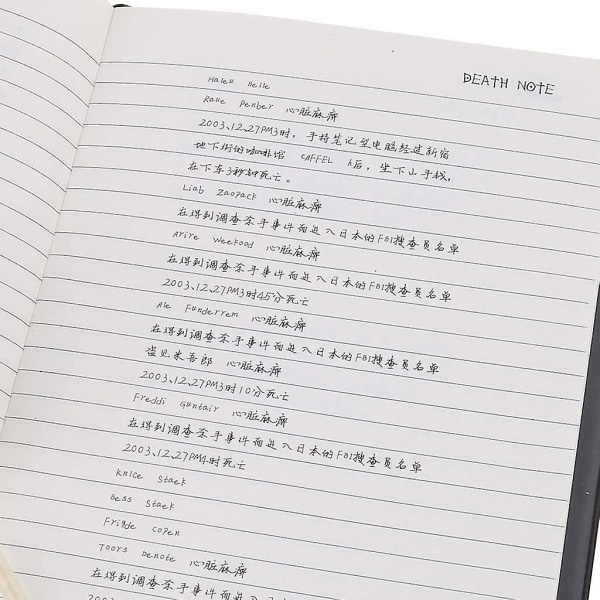 DEATH NOTE
Haleu Belle
Raue Penber 心脏麻痹
2003、12、27PM3时，手持笔记型电脑经过新宿
地下街的咖啡馆 CAFFEL h后，坐下山手线，
在下车3秒钟死亡。
Liab Zaopack 心脏麻痹
在得到调查杀手事件而进入日本的FBI搜查员名单
Arire Weekood 心脏麻痹
在得到调查杀手事件而进入日本的FBI搜查员名单
2003、12、27PM3时45分死亡
Ale Funderrem 心脏麻痹
在得到调查杀手事件而进入日本的FBI搜查员名单
盗见米吾郎 心脏麻痹
2003、12、27PM3时10分死亡
Freddi Guntair 心脏麻痹
在得到调查杀手事件而进入日本的FBI搜查员名单
2003、12、27PM4时死亡
Knice Staek
Bess Staek
Frigde Copen
Toors Denote 心脏麻痹
在得到调查杀手事件而进入日本的FBI搜查员名单
2003、12、27PM